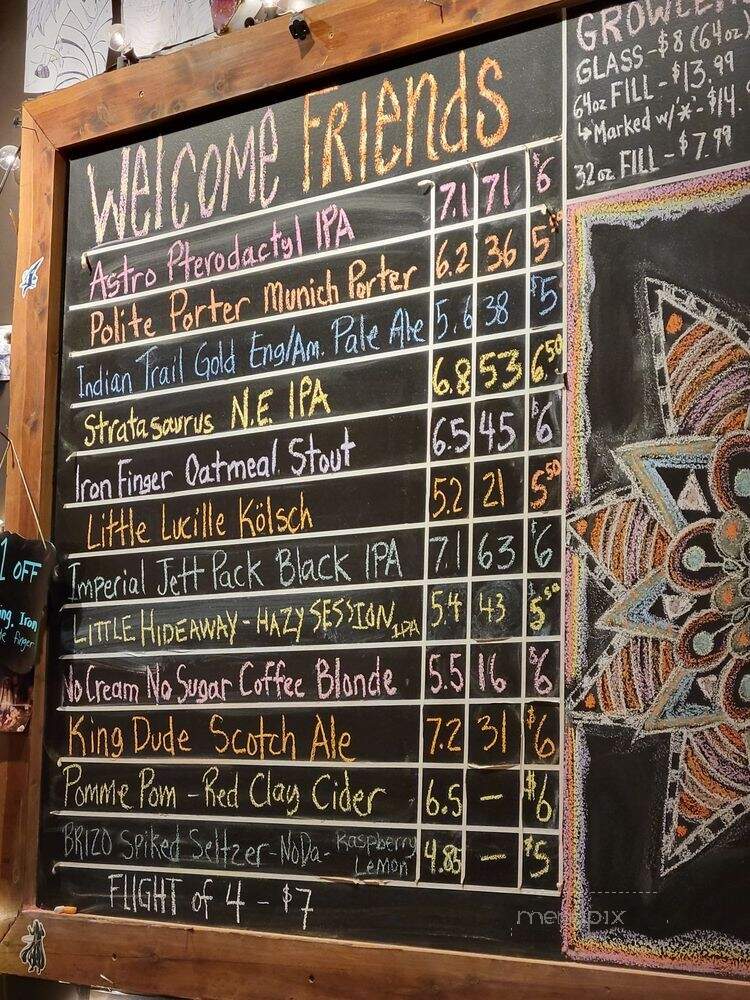 Welcome Friends
Astro Pterodactyl IPA 7.1 71 $6
Polite Porter Munich Porter 6.2 36 5
Indian Trail Gold Eng/Am. Pale Ale 5.6 38 $5
Stratasaurus N.E. IPA 6.8 53 6.50
Iron Finger Oatmeal Stout 6.5 45 $6
Little Lucille Kölsch 5.2 21 5.50
Imperial Jett Pack Black IPA 7.1 63 $6
LITTLE HIDEAWAY - HAZY SESSION IPA 5.4 43 $5.50
No Cream No Sugar Coffee Blonde 5.5 16 $6
King Dude Scotch Ale 7.2 31 $6
Pomme Pom - Red Clay Cider 6.5 - $6
BRIZO Spiked Seltzer - NoDa - Raspberry Lemon 4.85 - $5
FLIGHT of 4 - $7
GLASS - $8 (64oz)
64oz FILL - $13.99
↳ Marked w/'*' - $14.
32oz FILL - $7.99
OFF
Iron
finger
menupix